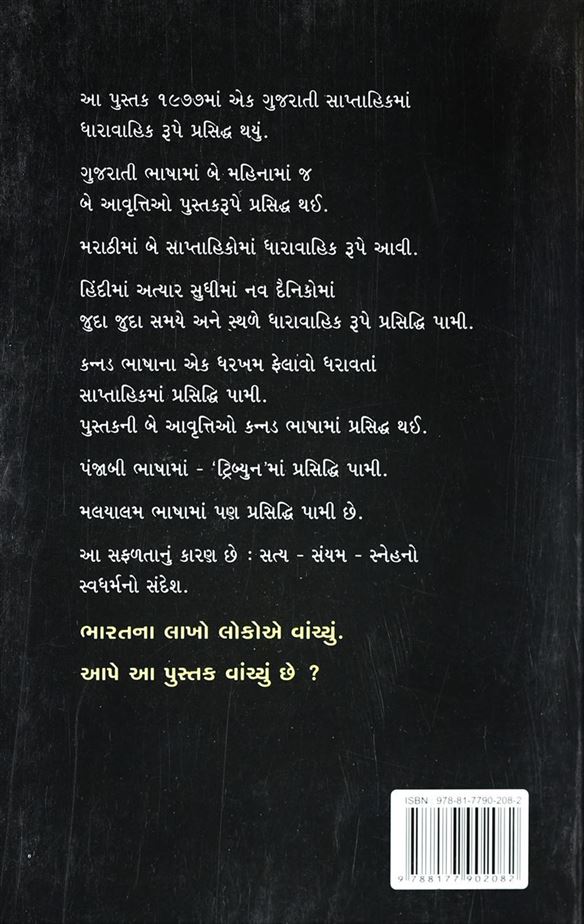 આ પુસ્તક ૧૯૭૭માં એક ગુજરાતી સાપ્તાહિકમાં
ધારાવાહિક રૂપે પ્રસિદ્ધ થયું.
ગુજરાતી ભાષામાં બે મહિનામાં જ
બે આવૃત્તિઓ પુસ્તકરૂપે પ્રસિદ્ધ થઈ.
મરાઠીમાં બે સાપ્તાહિકોમાં ધારાવાહિક રૂપે આવી.
હિંદીમાં અત્યાર સુધીમાં નવ દૈનિકોમાં
જુદા જુદા સમયે અને સ્થળે ધારાવાહિક રૂપે પ્રસિદ્ધિ પામી.
કન્નડ ભાષાના એક ધરખમ ફેલાવો ધરાવતાં
સાપ્તાહિકમાં પ્રસિદ્ધિ પામી.
પુસ્તકની બે આવૃત્તિઓ કન્નડ ભાષામાં પ્રસિદ્ધ થઈ.
પંજાબી ભાષામાં - ‘ટ્રિબ્યુન’માં પ્રસિદ્ધિ પામી.
મલયાલમ ભાષામાં પણ પ્રસિદ્ધિ પામી છે.
આ સફળતાનું કારણ છે : સત્ય - સંયમ - સ્નેહનો
સ્વધર્મનો સંદેશ.
ભારતના લાખો લોકોએ વાંચ્યું.
આપે આ પુસ્તક વાંચ્યું છે ?
ISBN 978-81-7790-208-2
9 788177 902082